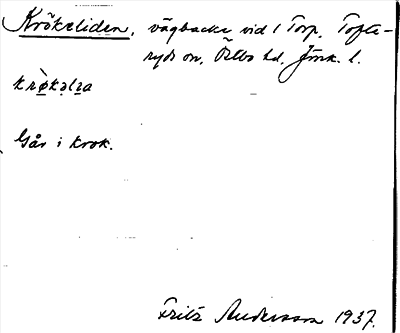 Krökeliden, vägbacke vid 1 Torp. Tofte-
ryds sn, Östbo hd, Jönk. l.
krø̀kəlɪa
Går i krok.
Fritz Andersson 1937.